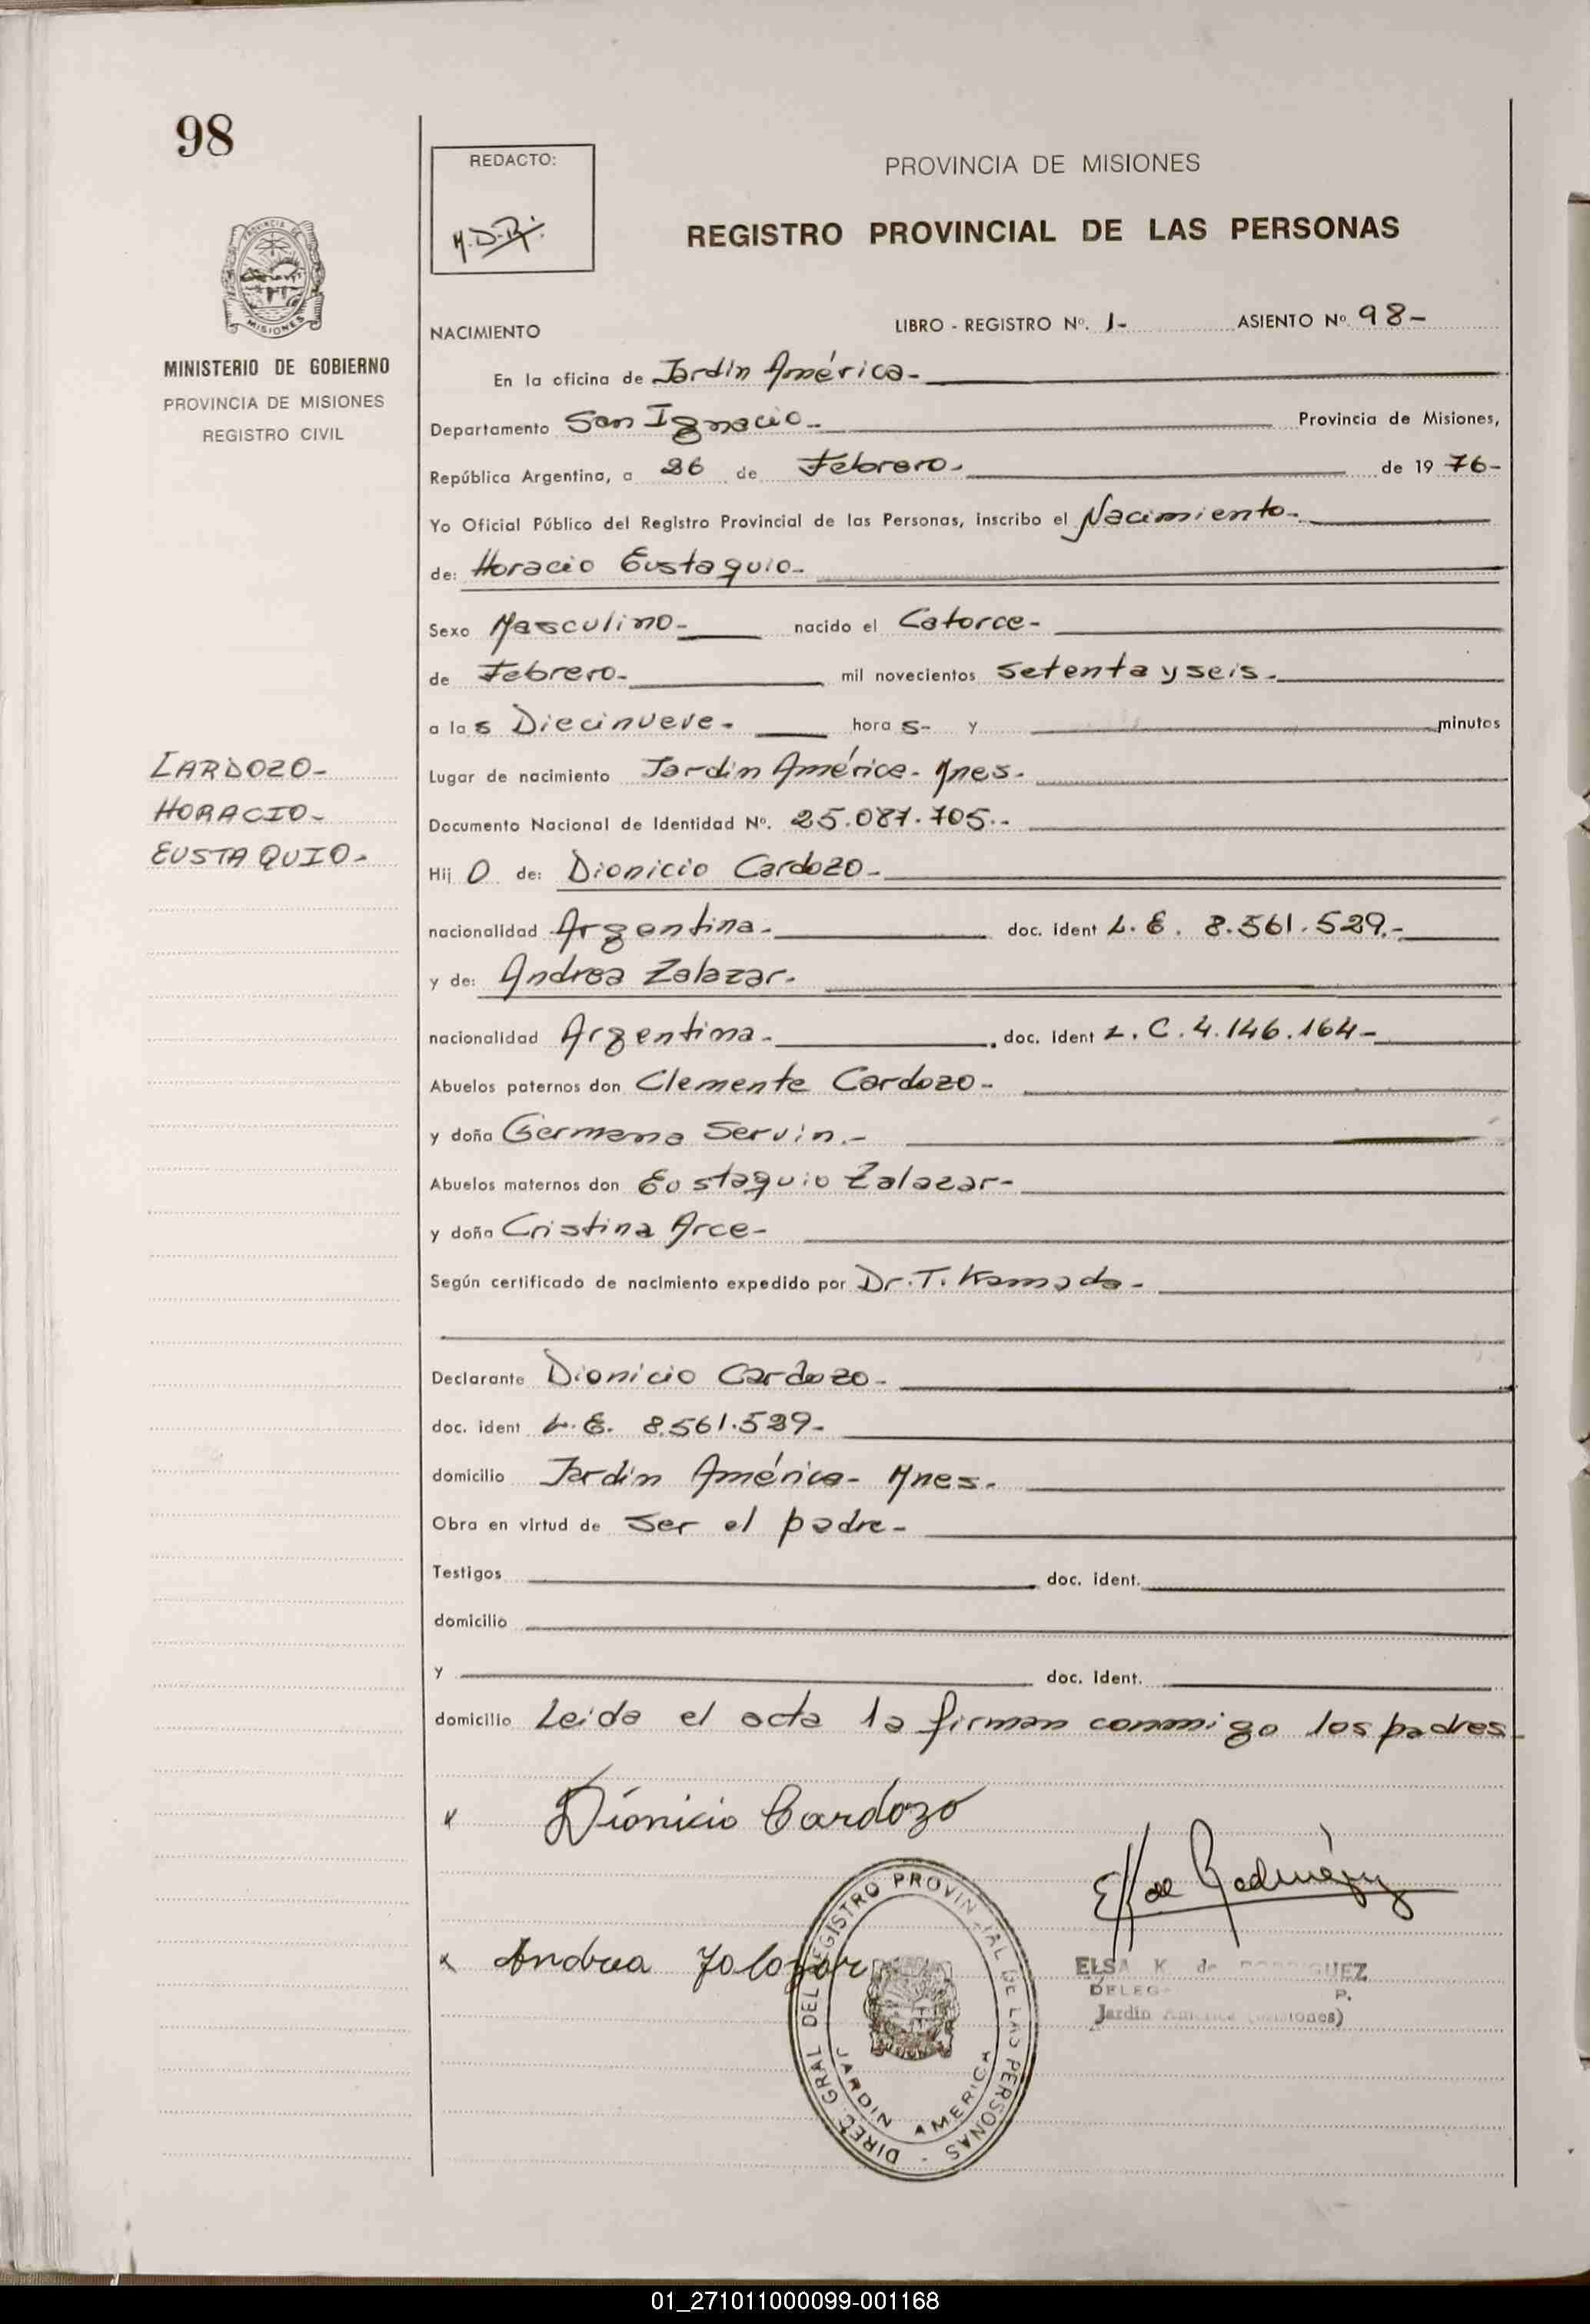 98
REDACTO:
M.D.R.
PROVINCIA DE MISIONES
REGISTRO PROVINCIAL DE LAS PERSONAS
PROVINCIA DE
MISIONES
MINISTERIO DE GOBIERNO
PROVINCIA DE MISIONES
REGISTRO CIVIL
NACIMIENTO LIBRO - REGISTRO Nº. 1- ASIENTO Nº. 98-
En la oficina de Jardin América-
Departamento San Ignacio- Provincia de Misiones,
República Argentina, a 26 de Febrero- de 19 76-
Yo Oficial Público del Registro Provincial de las Personas, inscribo el Nacimiento-
de: Horacio Eustaquio-
Sexo Masculino- nacido el Catorce-
de Febrero- mil novecientos setenta y seis-
a las Diecinueve- horas- y minutos
CARDOZO-
HORACIO-
EUSTAQUIO-
Lugar de nacimiento Jardin América- Mnes-
Documento Nacional de Identidad Nº. 25.087.705.-
Hijo de: Dionicio Cardozo-
nacionalidad Argentina- doc. ident L.E. 8.561.529.-
y de: Andrea Zalazar-
nacionalidad Argentina- doc. Ident L.C. 4.146.164-
Abuelos paternos don Clemente Cardozo-
y doña Germana Servin.-
Abuelos maternos don Eustaquio Zalazar-
y doña Cristina Arce-
Según certificado de nacimiento expedido por Dr. T. Kamada-
Declarante Dionicio Cardozo-
doc. ident L.E. 8.561.529-
domicilio Jardin América- Mnes-
Obra en virtud de ser el padre-
Testigos doc. ident.
domicilio
y doc. Ident.
domicilio Leida el acta la firman conmigo los padres-
x Dionicio Cardozo
x Andrea Zalazar
DIREC. GRAL DEL REGISTRO PROVINCIAL DE LAS PERSONAS -
JARDIN AMERICA
ELSA K. de RODRIGUEZ
Jardin América (Misiones)
01_271011000099-001168